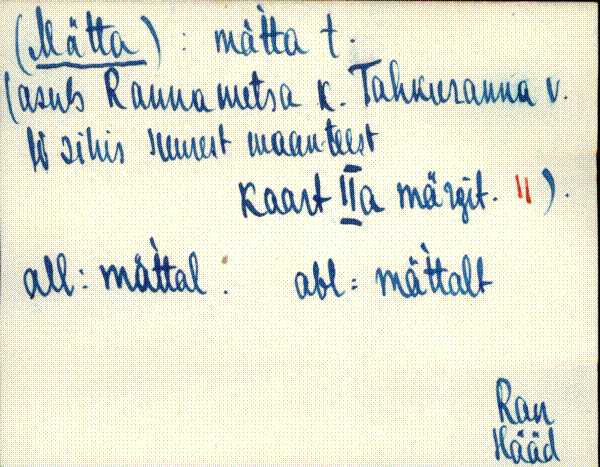 (Mätta) : mät̀ta t.
(asub Rannametsa k. Tahkuranna v.
W sihis suurest maanteest
Kaart IIa märgit. 11).
all: mät̀tal. abl: mät̀talt
Ran
Hääd